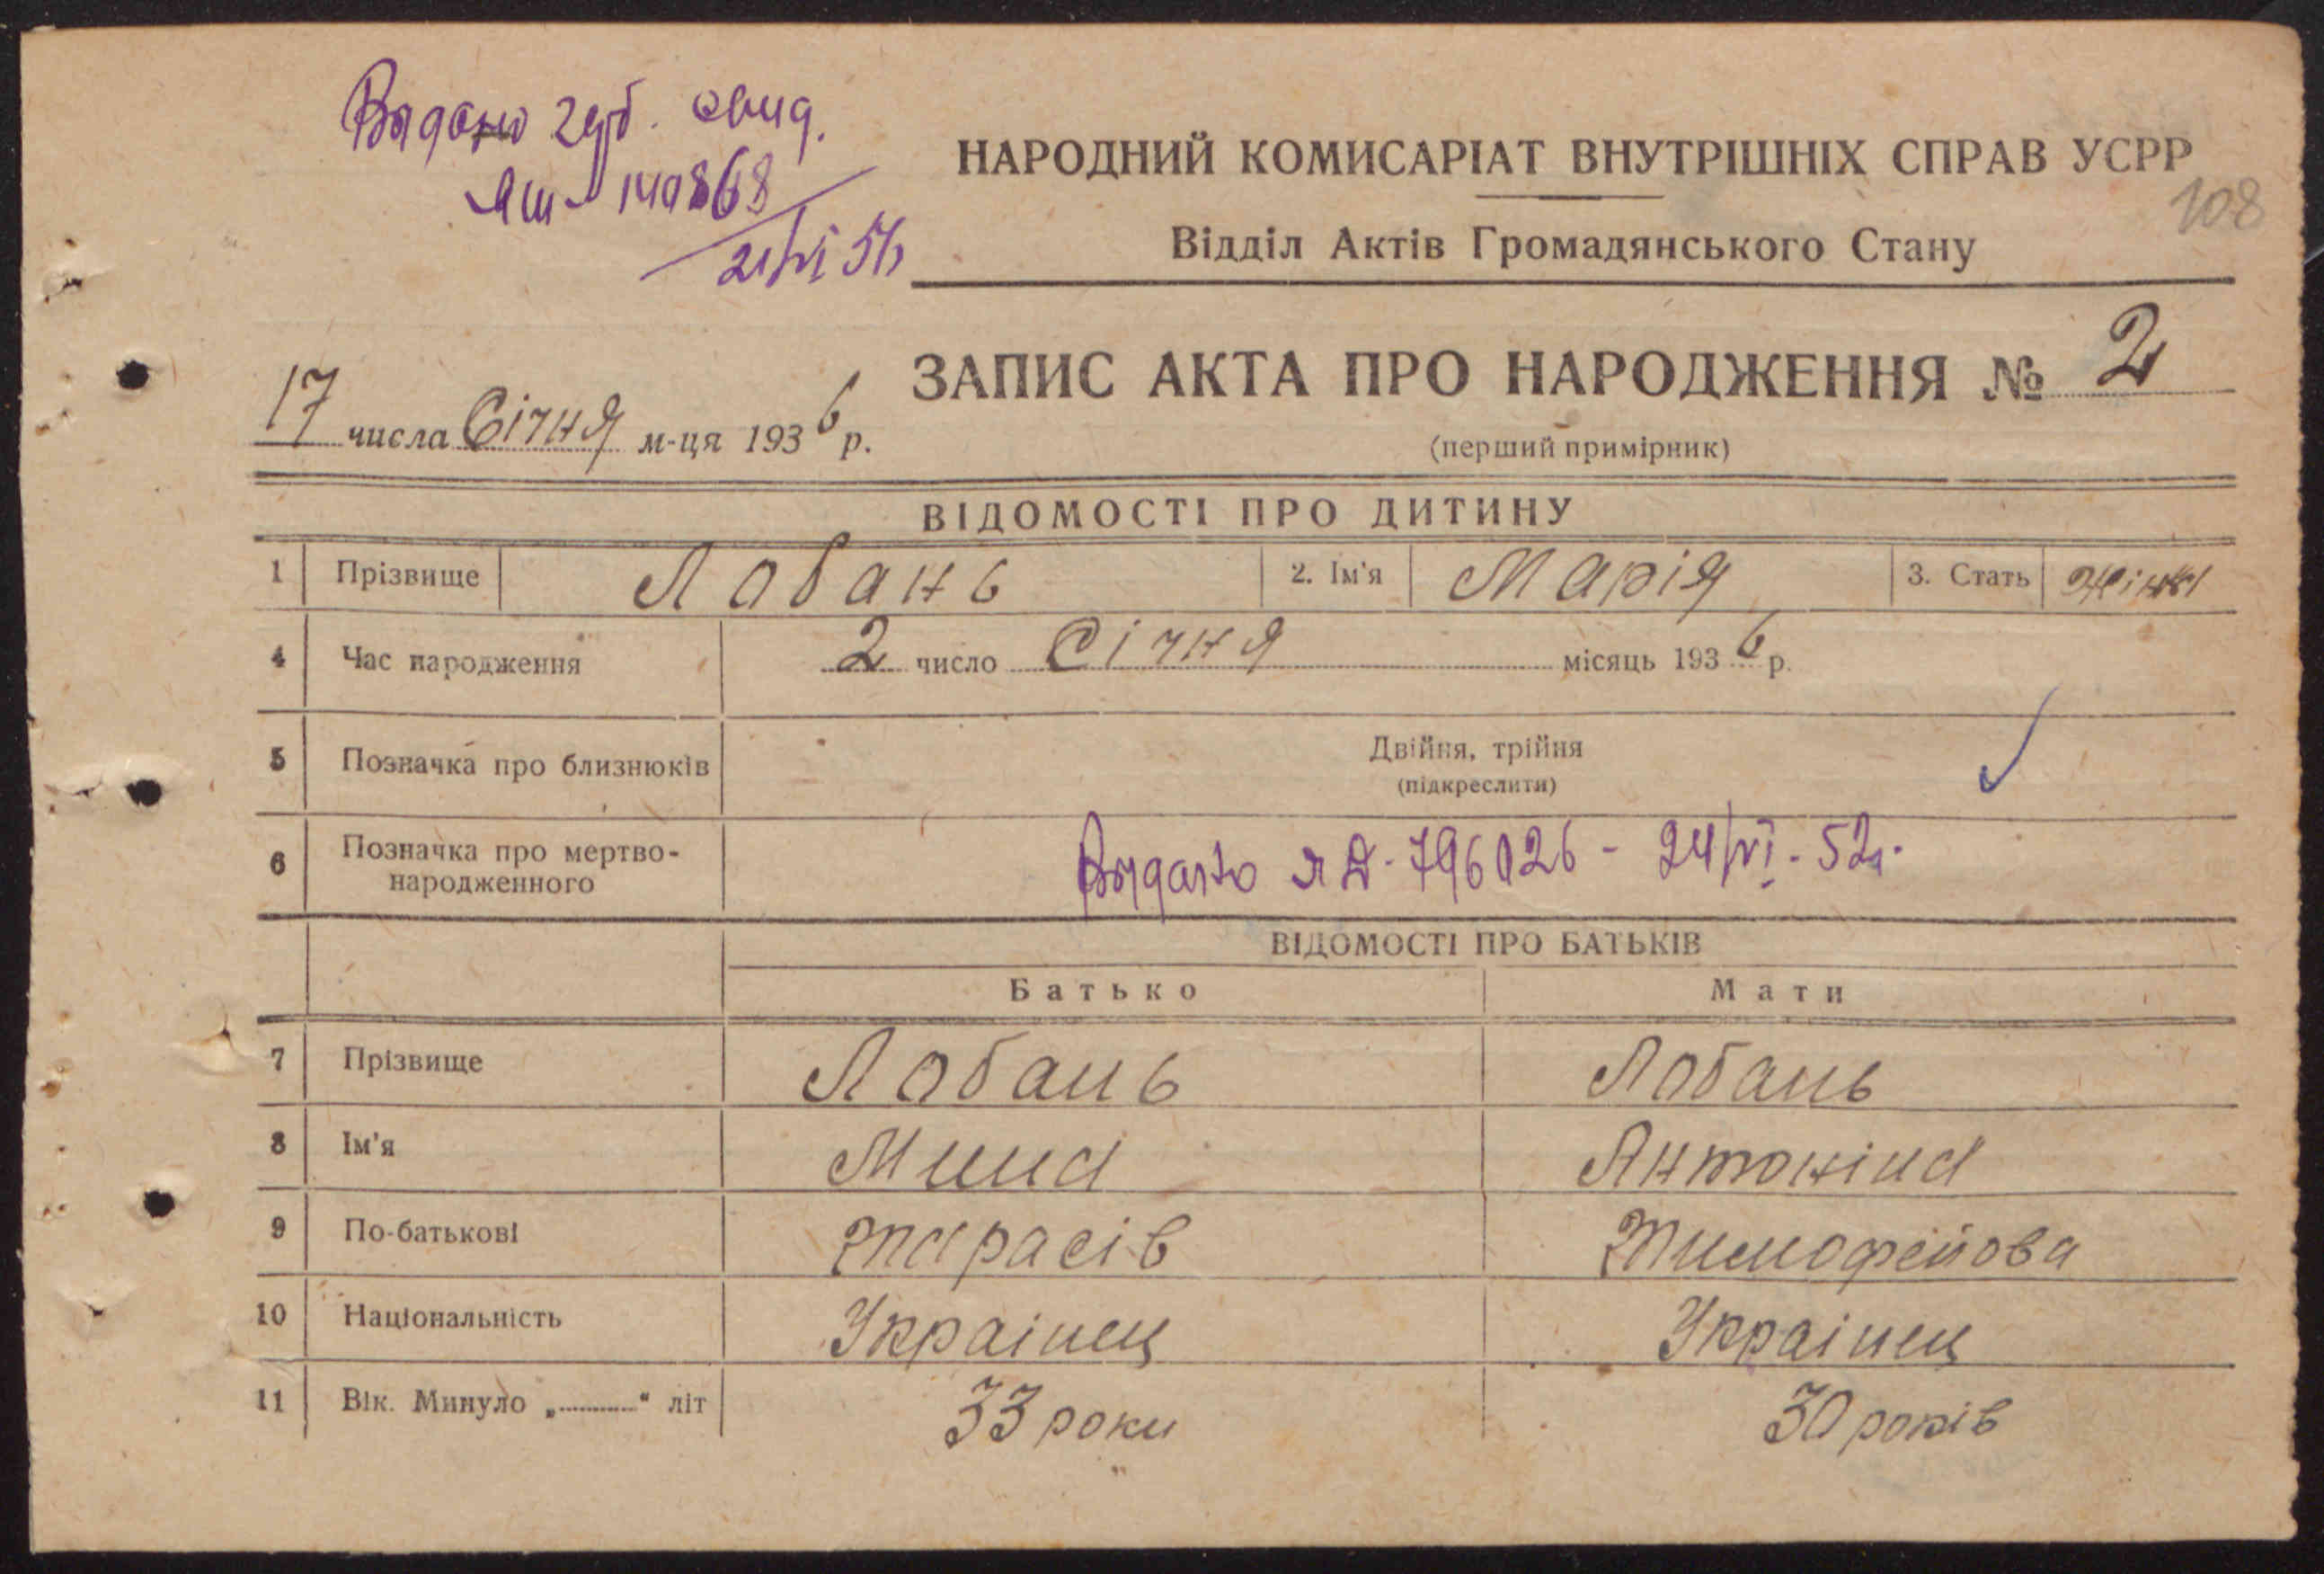 Видано 2 дуб. свид.
ЯШ 140868
21/VI 56
НАРОДНИЙ КОМИСАРІАТ ВНУТРІШНІХ СПРАВ УСРР
108
Відділ Актів Громадянського Стану
ЗАПИС АКТА ПРО НАРОДЖЕННЯ № 2
17 числа Січня м-ця 1936 р.
(перший примірник)
ВІДОМОСТІ ПРО ДИТИНУ
1 Прізвище Лобань 2. Ім'я Марія 3. Стать жінки
4 Час народження 2 число Січня місяць 1936 р.
5 Позначка про близнюків Двійня, трійня
(підкреслити)
6 Позначка про мертво-
народженного
Видано ЯД-796026 - 24/VI - 52г.
ВІДОМОСТІ ПРО БАТЬКІВ
Батько Мати
7 Прізвище Лобань Лобань
8 Ім'я Мина Антоніна
9 По-батькові Тарасів Тимофейова
10 Національність Украінец Украінец
11 Вік. Минуло „ “ літ 33 роки 30 років